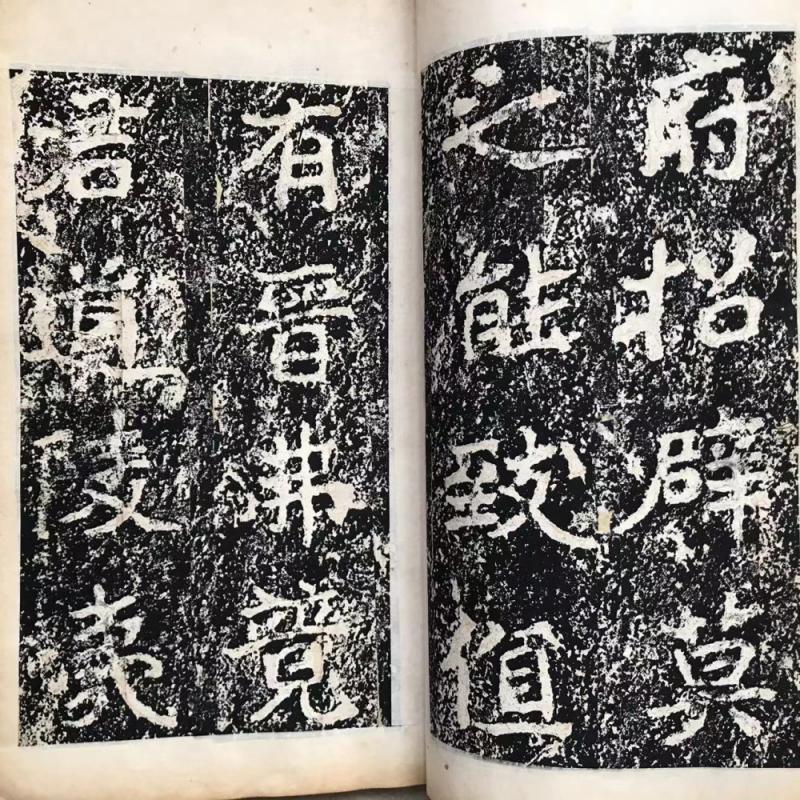 府招辟莫
之能致值
有晉弗竟
君道陵夷